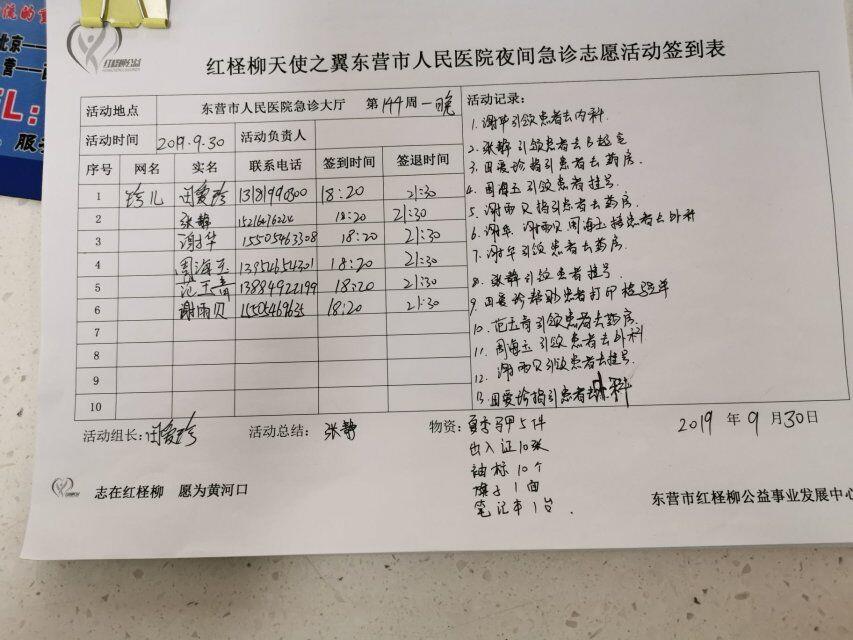 北京
营
TL:
服务
红柽柳公益
红柽柳天使之翼东营市人民医院夜间急诊志愿活动签到表
活动地点 东营市人民医院急诊大厅 第144周一晚
活动时间 2019.9.30 活动负责人
序号 网名 实名 联系电话 签到时间 签退时间
1 玲儿 爱珍 13181990300 18:20 21:30
2 张静 18:20 21:30
3 谢华 15505463308 18:20 21:30
4 周海玉 13954654301 18:20 21:30
5 范玉青 13884922199 18:20 21:30
6 谢雨贝 15505469635 18:20 21:30
7
8
9
10
活动记录:
1. 谢华引领患者去内科.
2. 张静引领患者去B超室
3. 爱珍指引患者去药房.
4. 周海玉引领患者挂号.
5. 谢雨贝指引患者去药房.
6. 谢华 谢雨贝 周海玉 患者去外科
7. 谢华引领患者去药房.
8. 张静引领患者挂号.
9. 爱珍帮助患者打印检验单
10. 范玉青引领患者去药房.
11. 周海玉引领患者去外科
12. 谢雨贝引领患者去挂号.
13. 爱珍指引患者去外科
活动组长: 爱珍 活动总结: 张静 物资: 夏季马甲5件
出入证10张
袖标10个
旗子1面
笔记本1台.
2019 年 9 月 30 日
志在红柽柳 愿为黄河口
东营市红柽柳公益事业发展中心